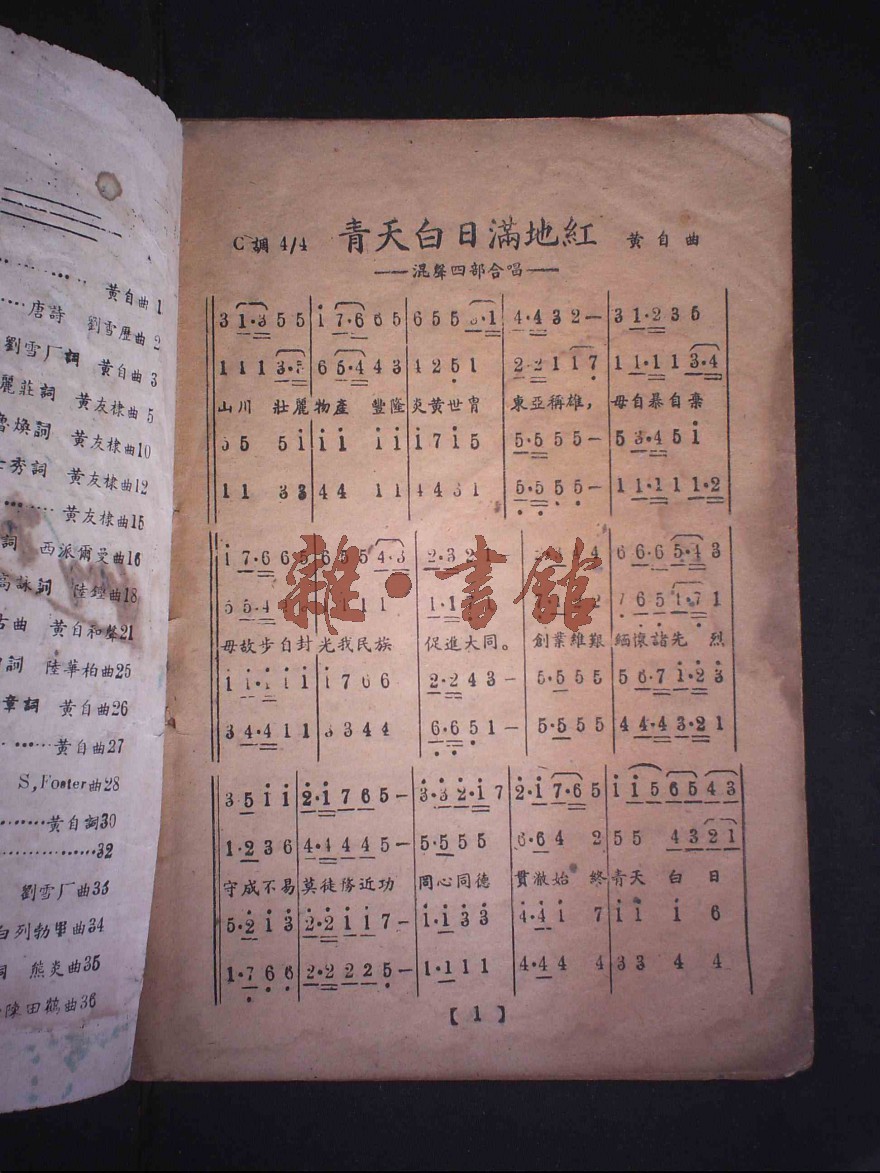 黃自曲 1
唐詩 劉雪厂曲 2
劉雪厂詞 黃自曲 3
麗莊詞 黃友棣曲 5
煥詞 黃友棣曲10
秀詞 黃友棣曲12
黃友棣曲15
詞 西派爾曼曲16
高詠詞 陸鏗曲18
古曲 黃自和聲21
詞 陸華柏曲25
章詞 黃自曲26
黃自曲27
S, Foster曲28
黃自詞30
32
劉雪厂曲33
白列勃里曲34
詞 熊炎曲35
陳田鶴曲36
C調 4/4 青天白日滿地紅 黃自曲
——混聲四部合唱——
3 1·3 5 5 i 7·6 6 5 6 5 5 3·1 4·4 3 2 — 3 1·2 3 5
1 1 1 3·5 6 5·4 4 3 4 2 5 1 2·2 1 1 7 1 1·1 1 3·4
山川 壯麗物產 豐隆炎黃世胄 東亞稱雄，毋自暴自棄
5 5 5 i i i i i i 7 i 5 5·5 5 5 — 5 3·4 5 i
1 1 3 3 4 4 1 1 4 4 3 1 5·5 5 5 — 1 1·1 1 1·2
i 7·6 6 5 6 5 5 4·3 2·3 2 1 6 6·6 5·4 3
5 5·4 1 1 6 5 1·7 1
毋故步自封光我民族 促進大同。 創業維艱 緬懷諸先 烈
i i·i i i i 7 6 6 2·2 4 3 — 5·5 5 5 5 6·7 i·2 3
3 4·4 1 1 3 4 4 6·6 5 1 — 5·5 5 5 4 4·4 3·2 1
3·5 i i 2·i 7 6 5 — 3·3 2·i 7 2·i 7·6 5 i i 5 6 5 4 3
1·2 3 6 4·4 4 4 5 — 5·5 5 5 6·6 4 2 5 5 4 3 2 1
守成不易莫徒務近功 同心同德 貫澈始 終青天 白 日
5·2 i 3 2·2 i i 7 — i·i 3 3 4·4 i 7 i i i 6
1·7 6 6 2·2 2 2 5 — 1·1 1 1 4·4 4 4 3 3 4 4
【 1 】
雜·書館